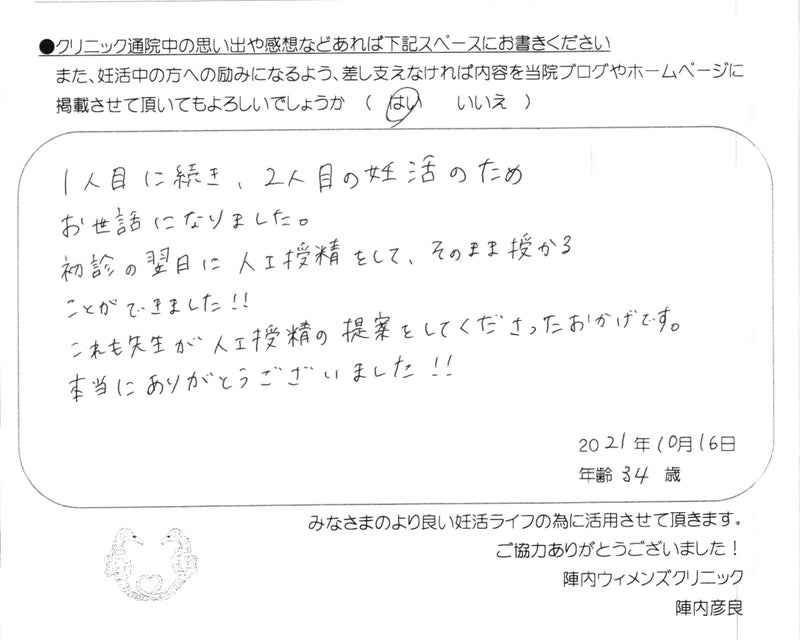 ●クリニック通院中の思い出や感想などあれば下記スペースにお書きください
また、妊活中の方への励みになるよう、差し支えなければ内容を当院ブログやホームページに
掲載させて頂いてもよろしいでしょうか （ はい　いいえ ）
1人目に続き、2人目の妊活のため
お世話になりました。
初診の翌日に人工授精をして、そのまま授かる
ことができました!!
これも先生が人工授精の提案をしてくださったおかげです。
本当にありがとうございました!!
2021年10月16日
年齢 34 歳
みなさまのより良い妊活ライフの為に活用させて頂きます。
ご協力ありがとうございました！
陣内ウィメンズクリニック
陣内彦良